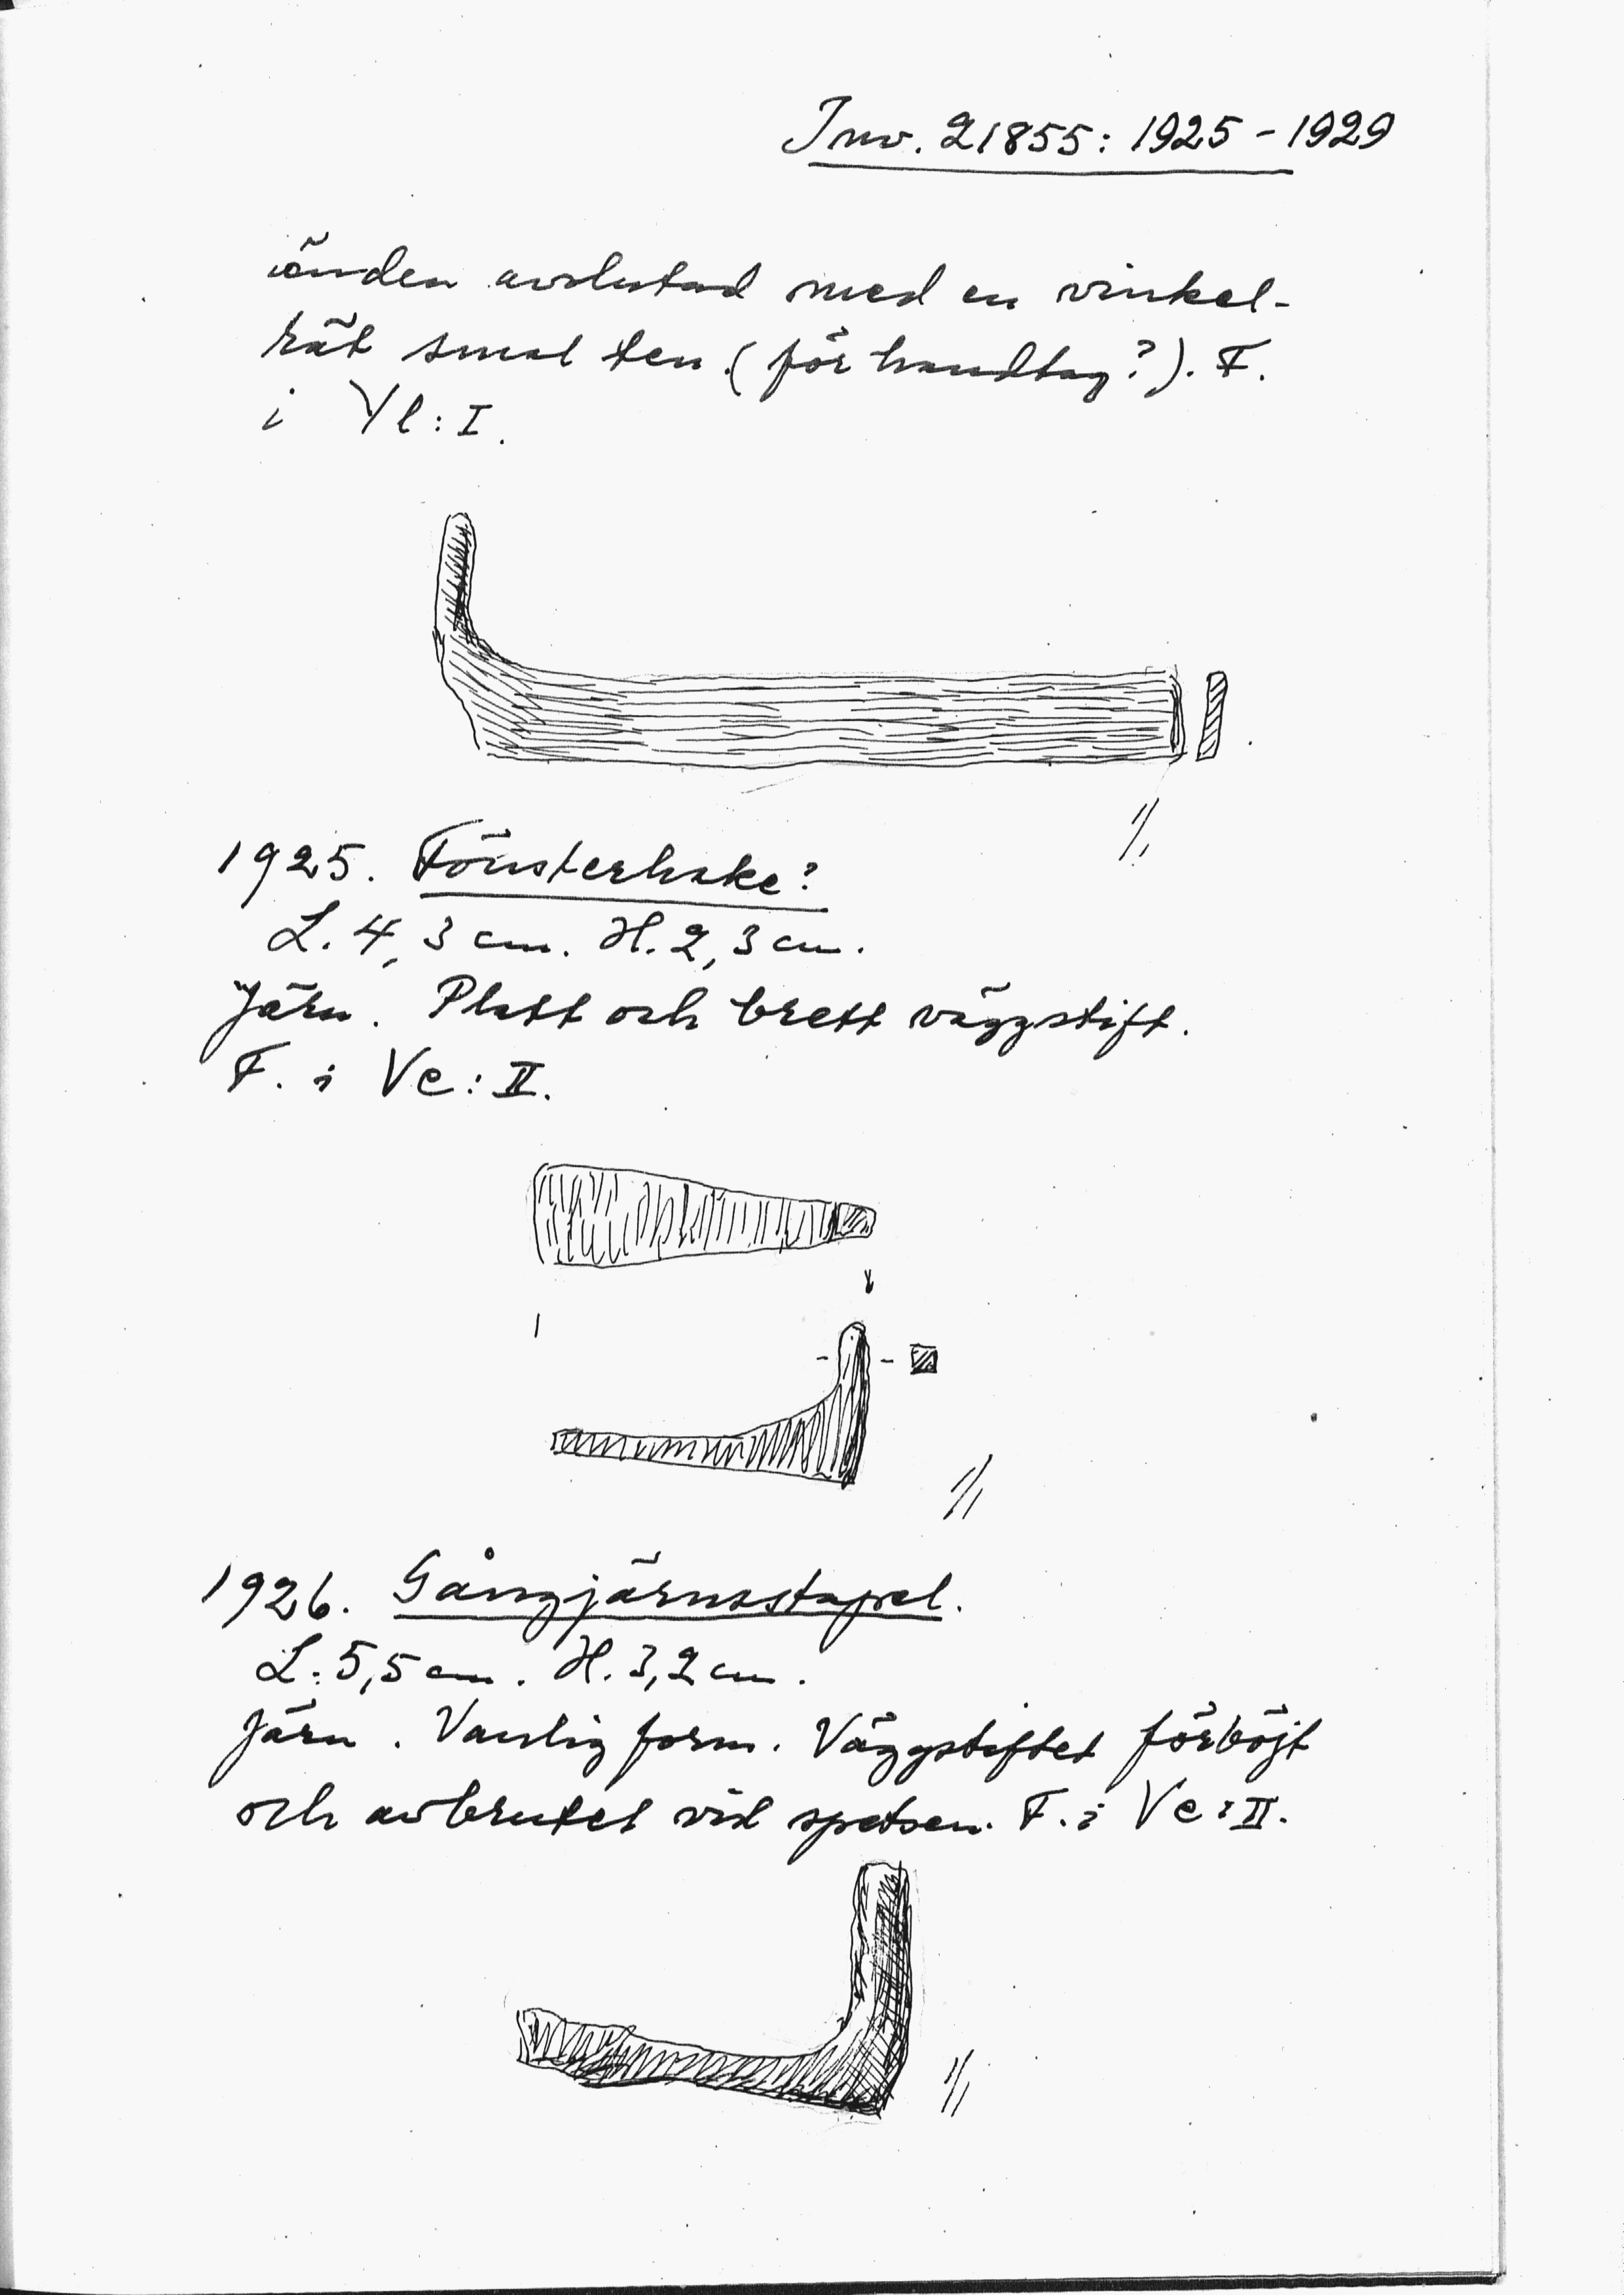 Inv. 21855: 1925-1929
änden avslutad med en vinkel-
rät smal ten (för handtag?). F.
i Yl: I.
1/1
1925. Fönsterhake?
L. 4,3 cm. H. 2,3 cm.
Järn. Platt och brett väggstift.
F. i Ve: II.
1/1
1926. Gångjärnsstapel.
L. 5,5 cm. H. 3,2 cm.
Järn. Vanlig form. Väggstiftet förböjt
och avbrutet vid spetsen. F. i Ve: II.
1/1